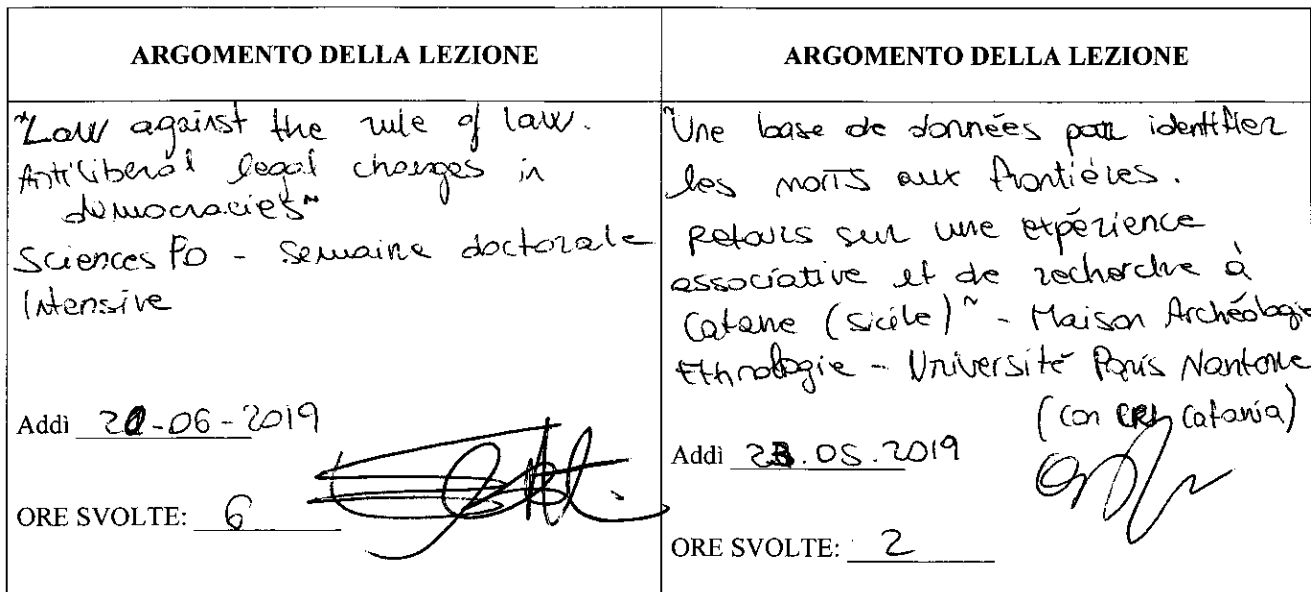 ARGOMENTO DELLA LEZIONE
"Law against the rule of law.
Antiliberal legal changes in
democracies"
Sciences Po - Semaine doctorale
Intensive
Addì -06-2019
ORE SVOLTE: 6
ARGOMENTO DELLA LEZIONE
"Une base de données pour identifier
les morts aux frontières.
Retours sur une expérience
associative et de recherche à
Catane (Sicile)" - Maison Archéologie
Ethnologie - Université Paris Nanterre
(con CRI Catania)
Addì .05.2019
ORE SVOLTE: 2